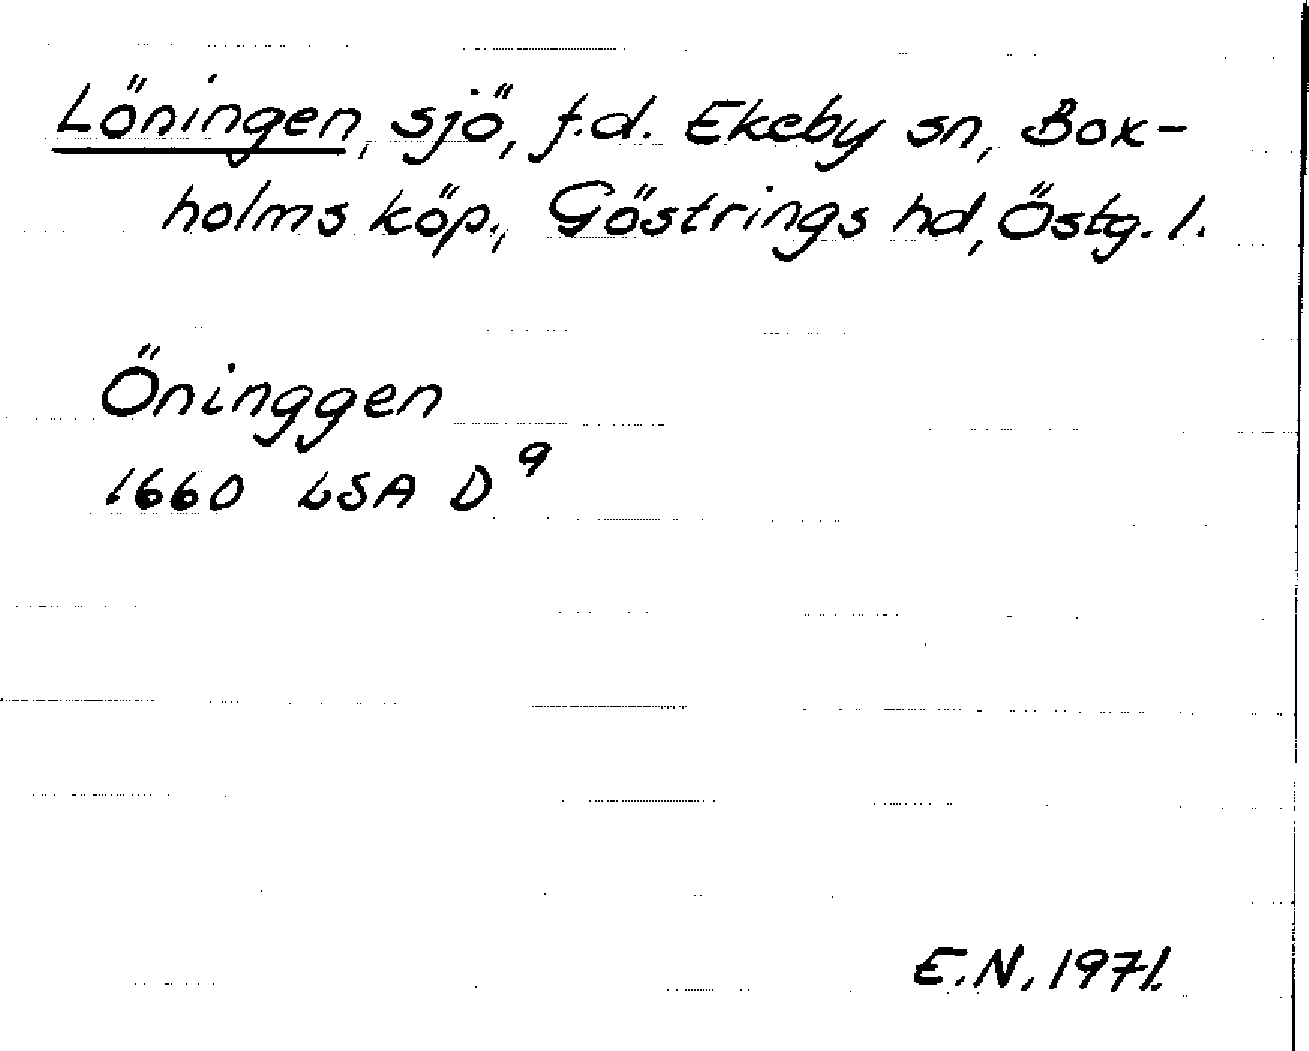 Löningen, sjö, f.d. Ekeby sn, Box-
holms köp., Göstrings hd, Östg. l.
Öninggen
1660 LSA D 9
E.N. 1971.